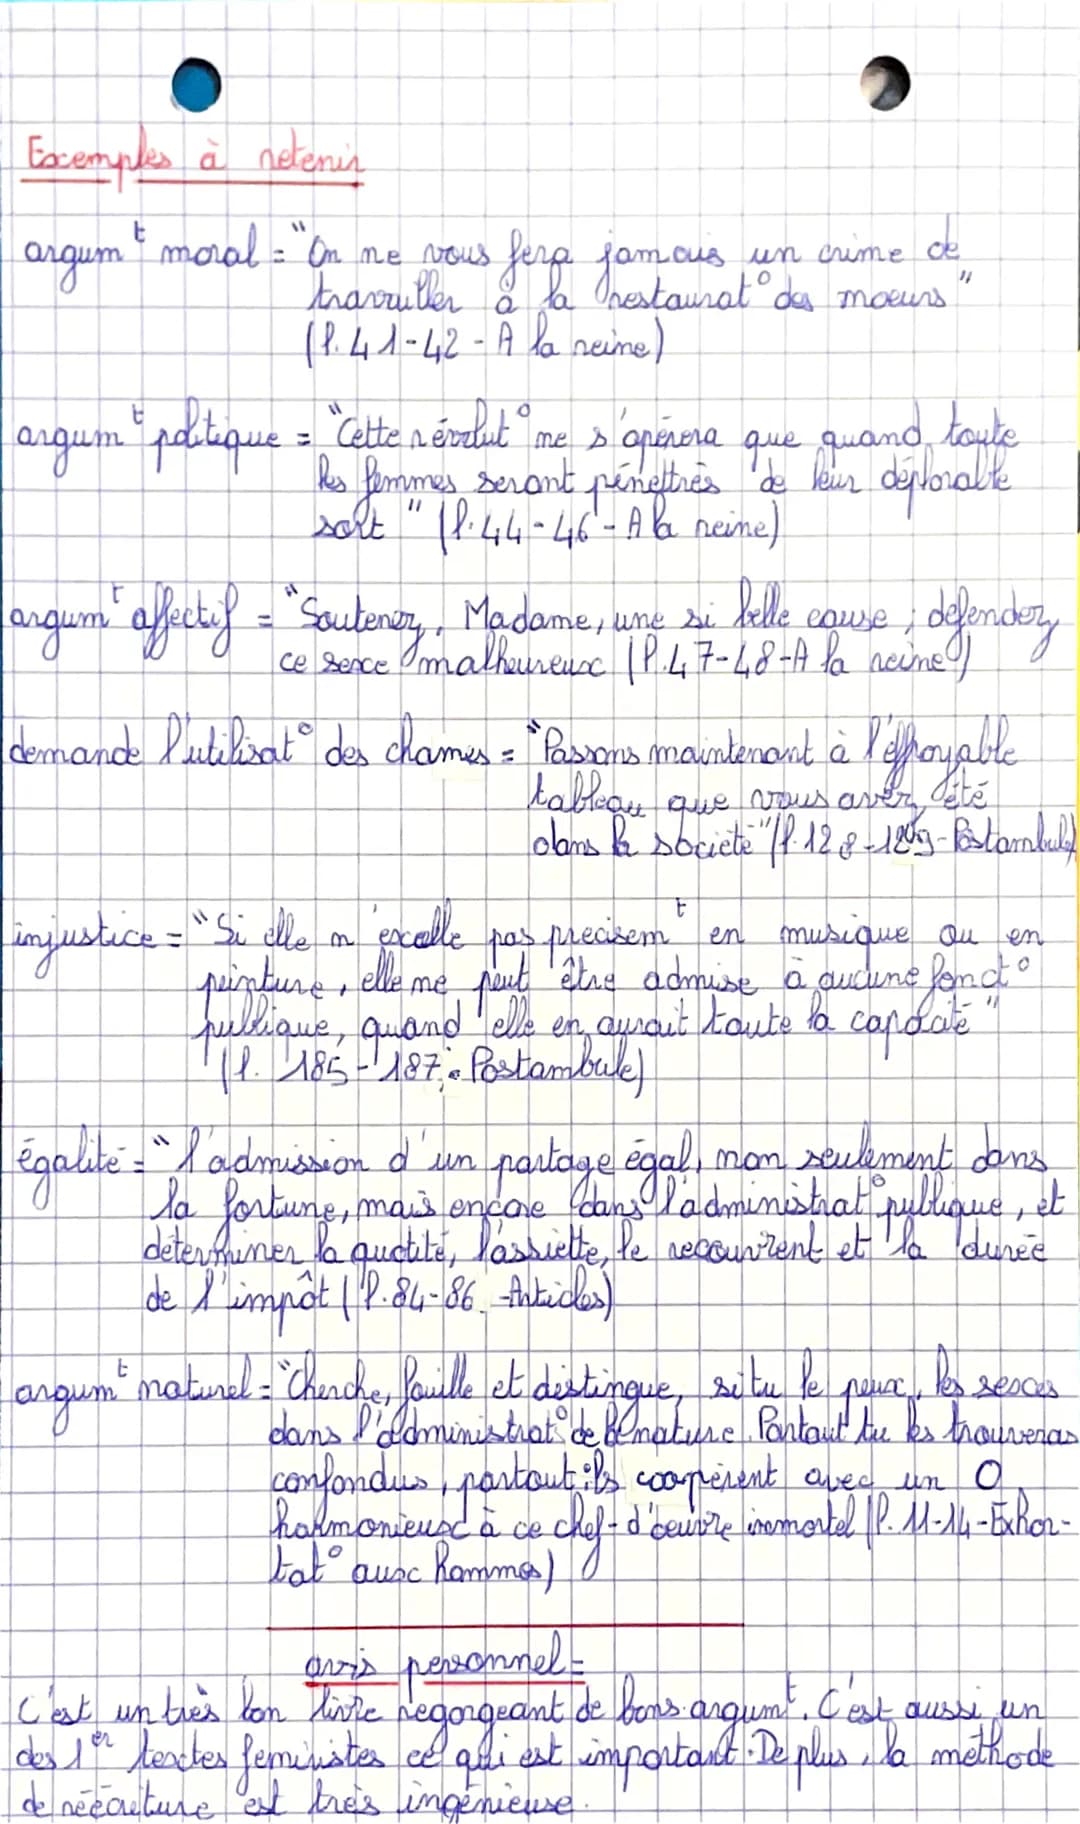 Exemples à retenir
argumt moral = "On ne vous fera jamais un crime de
travailler à la restaurat° des moeurs"
(l. 41-42 - A la reine)
argumt politique = "Cette révolut° ne s'opérera que quand toute
les femmes seront pénéttrés de leur déplorable
sort" (l. 44-46 - A la reine)
argumt affectif = "Soutenez, Madame, une si belle cause ; défendez
ce sexe malheureux (l. 47-48 - A la reine)
demande l'utilisat° des charmes = "Passons maintenant à l'éffroyable
tableau que vous avez été
dans la société" (l. 128-129 - Postambule)
injustice = "Si elle n'excelle pas precisemt en musique ou en
peinture, elle ne peut être admise à aucune fonct°
publique, quand elle en aurait toute la capacité"
(l. 185-187 - Postambule)
égalité = "l'admission d'un partage égal, non seulement dans
la fortune, mais encore dans l'administrat° publique, et
déterminer la quotité, l'assiette, le recouvrent et la durée
de l'impôt (l. 84-86 - Articles)
argumt naturel = "Cherche, fouille et distingue, si tu le peux, les sexes
dans l'administrat° de la nature. Partout tu les trouveras
confondus, partout ils coopèrent avec un O
harmonieux à ce chef-d'oeuvre immortel (l. 11-14 - Exhor-
tat° aux hommes)
avis personnel =
C'est un très bon livre regorgeant de bons argumt. C'est aussi un
des 1er textes féministes ce qui est important. De plus, la méthode
de réécriture est très ingénieuse.